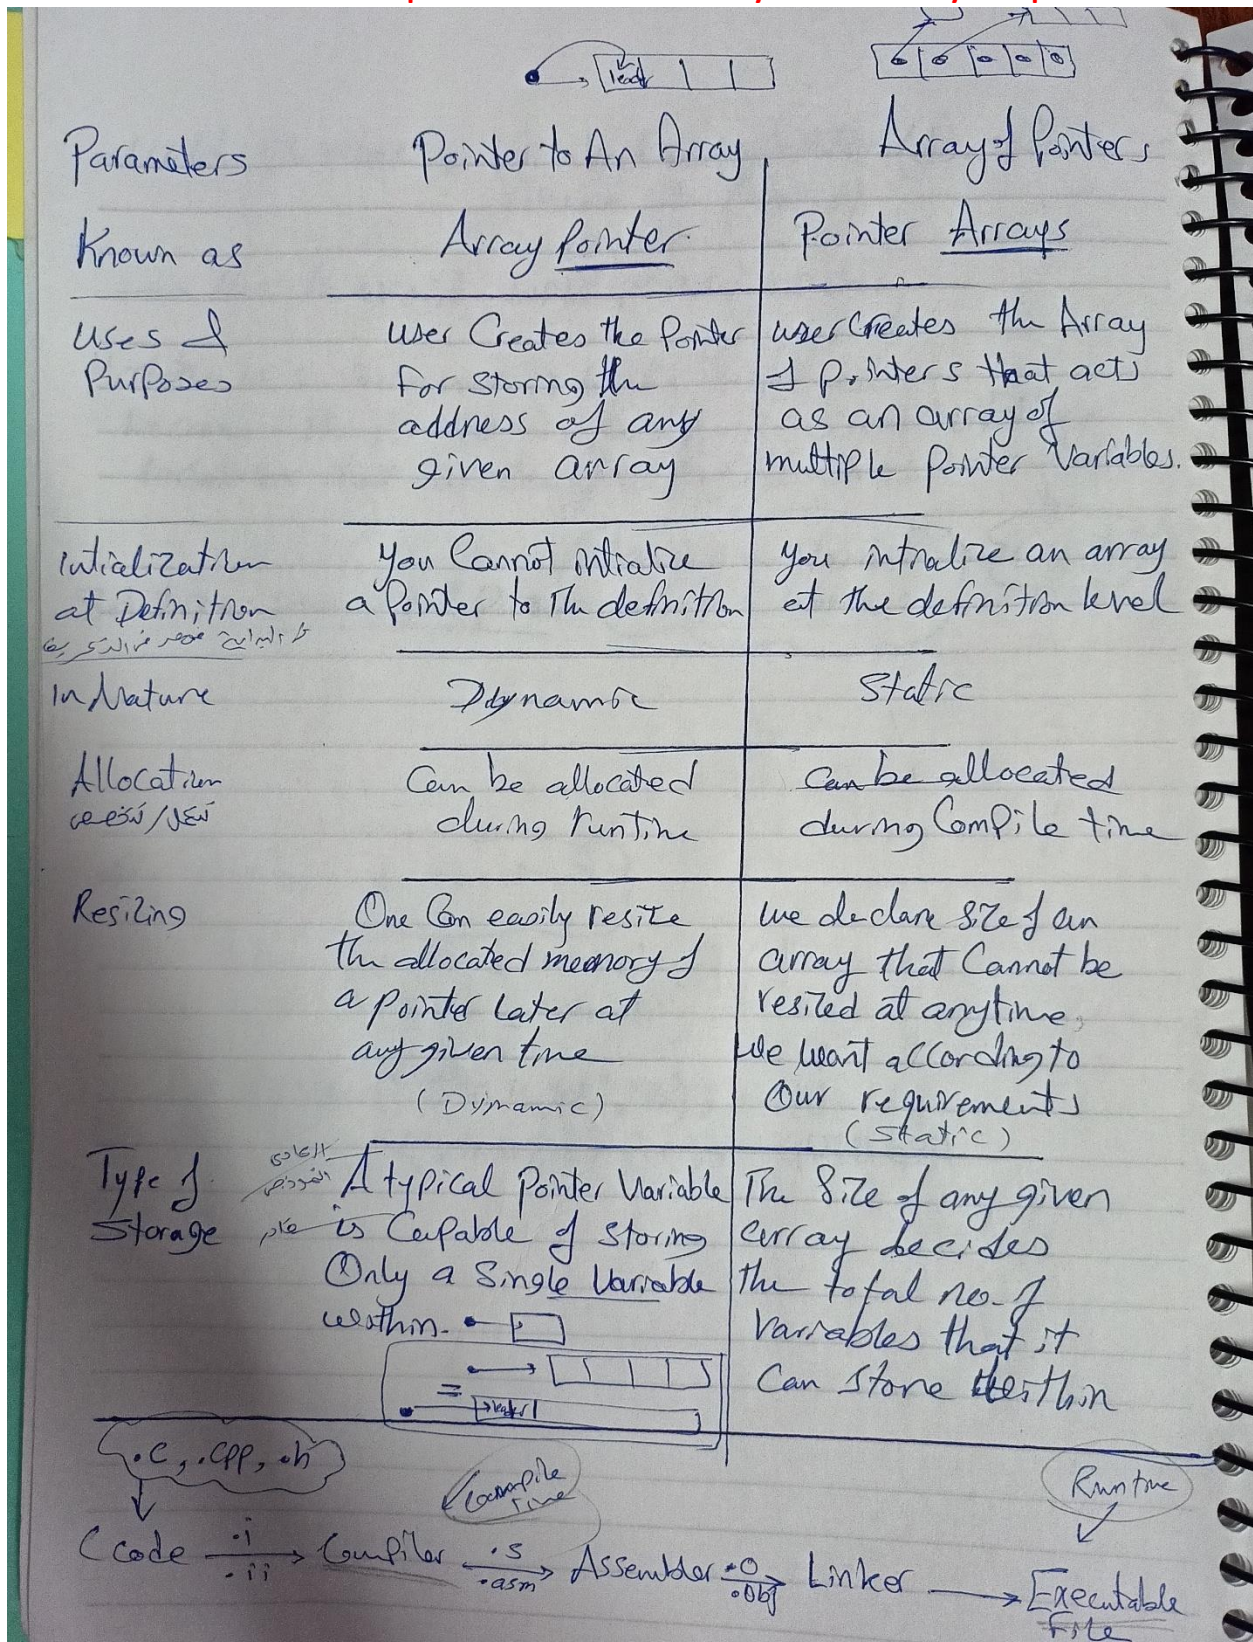 lead
Parameters
Pointer to An Array
Array of Pointers
Known as
Array Pointer
Pointer Arrays
Uses &
Purposes
user Creates the Pointer
for storing the
address of any
given array
user Creates the Array
of pointers that acts
as an array of
multiple Pointer Variables.
Intialization
at Definition
You Cannot intialize
a Pointer to the definition
You intialize an array
at the definition level
In Nature
Dynamic
Static
Allocation
Can be allocated
during runtime
Can be allocated
during Compile time
Resizing
One Can easily resize
the allocated memory of
a pointer later at
any given time
(Dynamic)
we declare Size of an
array that Cannot be
resized at anytime
We want according to
Our requirements
(Static)
Type of
Storage
A typical Pointer Variable
is Capable of storing
Only a Single Variable
within.
العادي
النموذجي
قادر
The Size of any given
array decides
the total no. of
Variables that it
Can store within
.C, .CPP, .h
Compile
Time
Runtime
C code .i .ii Compiler .s .asm Assembler .O .Obj Linker Executable
File